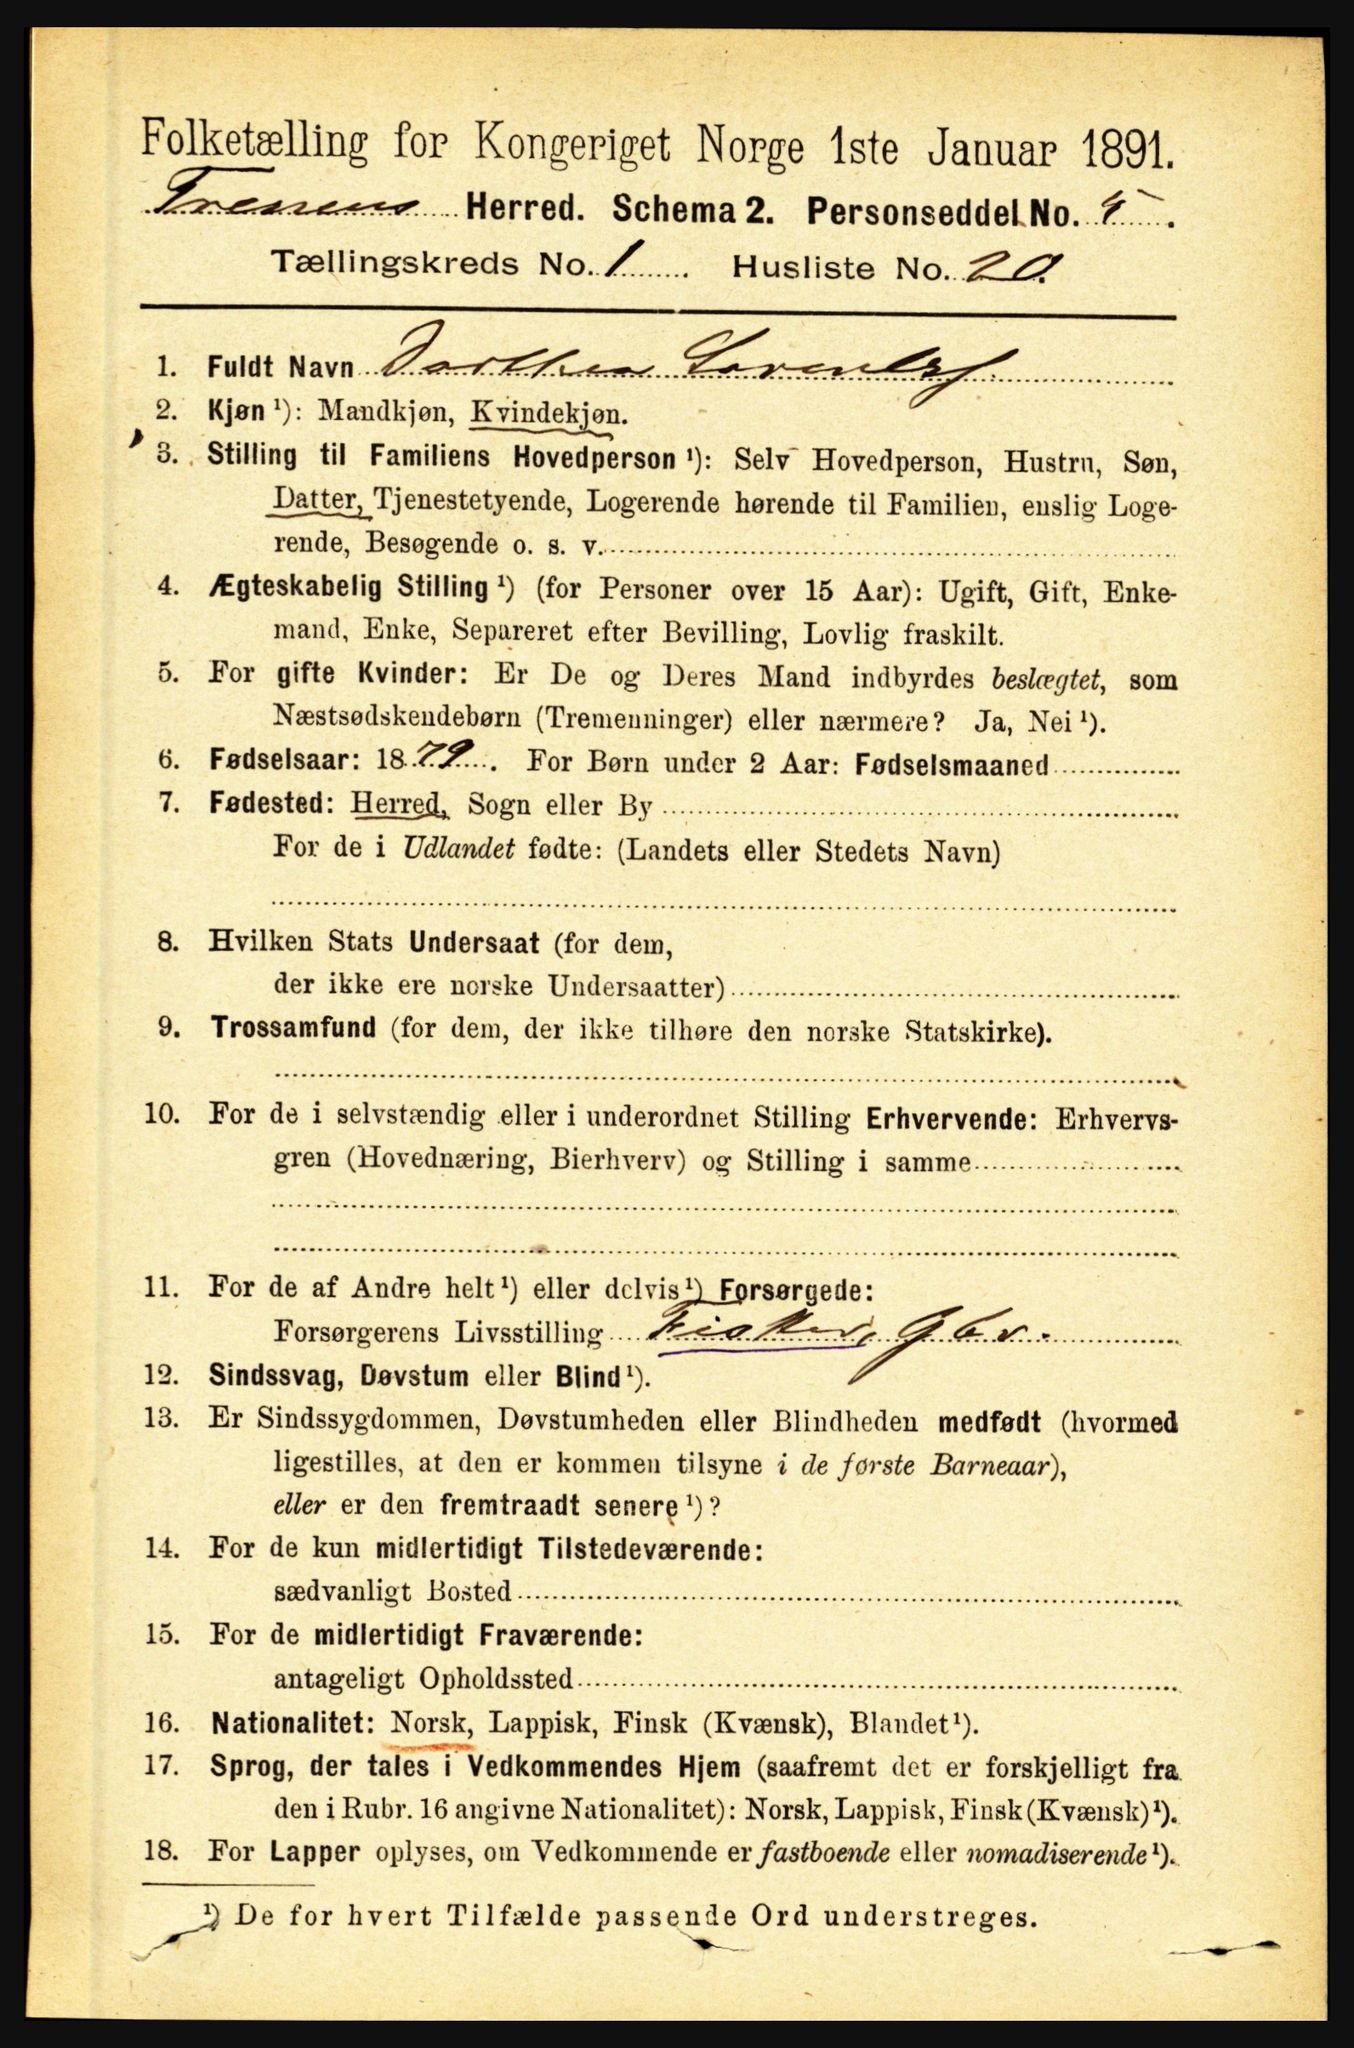 Folketælling for Kongeriget Norge 1ste Januar 1891.
Trænens Herred. Schema 2. Personseddel No. 4.
Tællingskreds No. 1. Husliste No. 20.
1. Fuldt Navn Dorthea
2. Kjøn¹): Mandkjøn, Kvindekjøn.
3. Stilling til Familiens Hovedperson¹): Selv Hovedperson, Hustru, Søn,
Datter, Tjenestetyende, Logerende hørende til Familien, enslig Loge-
rende, Besøgende o. s. v.
4. Ægteskabelig Stilling¹) (for Personer over 15 Aar): Ugift, Gift, Enke-
mand, Enke, Separeret efter Bevilling, Lovlig fraskilt.
5. For gifte Kvinder: Er De og Deres Mand indbyrdes beslægtet, som
Næstsødskendebørn (Tremenninger) eller nærmere? Ja, Nei¹).
6. Fødselsaar: 1879. For Børn under 2 Aar: Fødselsmaaned
7. Fødested: Herred, Sogn eller By
For de i Udlandet fødte: (Landets eller Stedets Navn)
8. Hvilken Stats Undersaat (for dem,
der ikke ere norske Undersaatter)
9. Trossamfund (for dem, der ikke tilhøre den norske Statskirke).
10. For de i selvstændig eller i underordnet Stilling Erhvervende: Erhvervs-
gren (Hovednæring, Bierhverv) og Stilling i samme
11. For de af Andre helt¹) eller delvis¹) Forsørgede:
Forsørgerens Livsstilling Fisker, Gbr.
12. Sindssvag, Døvstum eller Blind¹).
13. Er Sindssygdommen, Døvstumheden eller Blindheden medfødt (hvormed
ligestilles, at den er kommen tilsyne i de første Barneaar),
eller er den fremtraadt senere¹)?
14. For de kun midlertidigt Tilstedeværende:
sædvanligt Bosted
15. For de midlertidigt Fraværende:
antageligt Opholdssted
16. Nationalitet: Norsk, Lappisk, Finsk (Kvænsk), Blandet¹).
17. Sprog, der tales i Vedkommendes Hjem (saafremt det er forskjelligt fra
den i Rubr. 16 angivne Nationalitet): Norsk, Lappisk, Finsk (Kvænsk)¹).
18. For Lapper oplyses, om Vedkommende er fastboende eller nomadiserende¹).
¹) De for hvert Tilfælde passende Ord understreges.